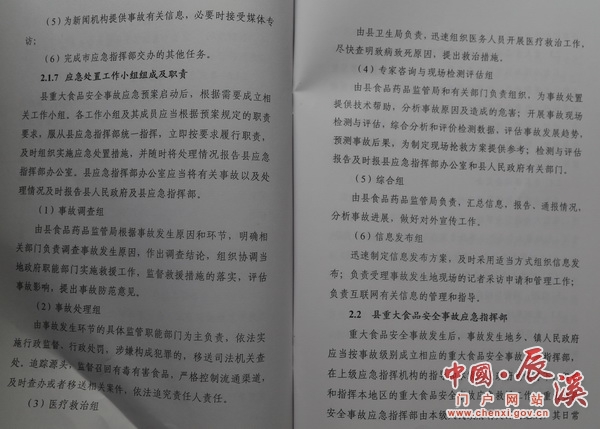 （5）为新闻机构提供事故有关信息，必要时接受媒体专
访；
（6）完成市应急指挥部交办的其他任务。
2.1.7 应急处置工作小组组成及职责
县重大食品安全事故应急预案启动后，根据需要成立相
关工作小组。各工作小组及其成员应当根据预案规定的职责
要求，服从县应急指挥部统一指挥，立即按要求履行职责，
及时组织实施应急处置措施，并随时将处理情况报告县应急
指挥部办公室。县应急指挥部办公室应当将有关事故以及处
理情况及时报告县人民政府及县应急指挥部。
（1）事故调查组
由县食品药品监管局根据事故发生原因和环节，明确相
关部门负责调查事故发生原因，作出调查结论，组织协调当
地政府职能部门实施救援工作，监督救援措施的落实，评估
事故影响，提出事故防范意见。
（2）事故处理组
由事故发生环节的具体监管职能部门为主负责，依法实
施行政监督、行政处罚，涉嫌构成犯罪的，移送司法机关查
处，追踪源头，监督召回有毒有害食品，严格控制流通渠道，
及时查办或者移送相关案件，依法追究责任人责任。
（3）医疗救治组
由县卫生局负责，迅速组织医务人员开展医疗救治工作，
尽快查明致病致死原因，提出救治措施。
（4）专家咨询与现场检测评估组
由县食品药品监管局和有关部门负责组织，为事故处置
提供技术帮助，分析事故原因及造成的危害；开展事故现场
检测与评估，综合分析和评价检测数据，评估事故发展趋势，
预测事故后果，为制定现场抢救方案提供参考；检测与评估
报告及时报县应急指挥部办公室和县人民政府有关部门。
（5）综合组
由县食品药品监管局负责，汇总信息、报告、通报情况，
分析事故进展，做好对外宣传工作。
（6）信息发布组
迅速制定信息发布方案，及时采用适当方式组织信息发
布；负责受理事故发生地现场的记者采访申请和管理工作；
负责互联网有关信息的管理和指导。
2.2 县重大食品安全事故应急指挥部
重大食品安全事故发生后，事故发生地乡、镇人民政府
应当按事故级别成立相应的重大食品安全事故应急指挥部，
在上级应急指挥机构的指导
和指挥本地区的重大食品安全事故应急
安全事故应急指挥部由本级 其日常
中国·辰溪
门户网站
www.chenxi.gov.cn